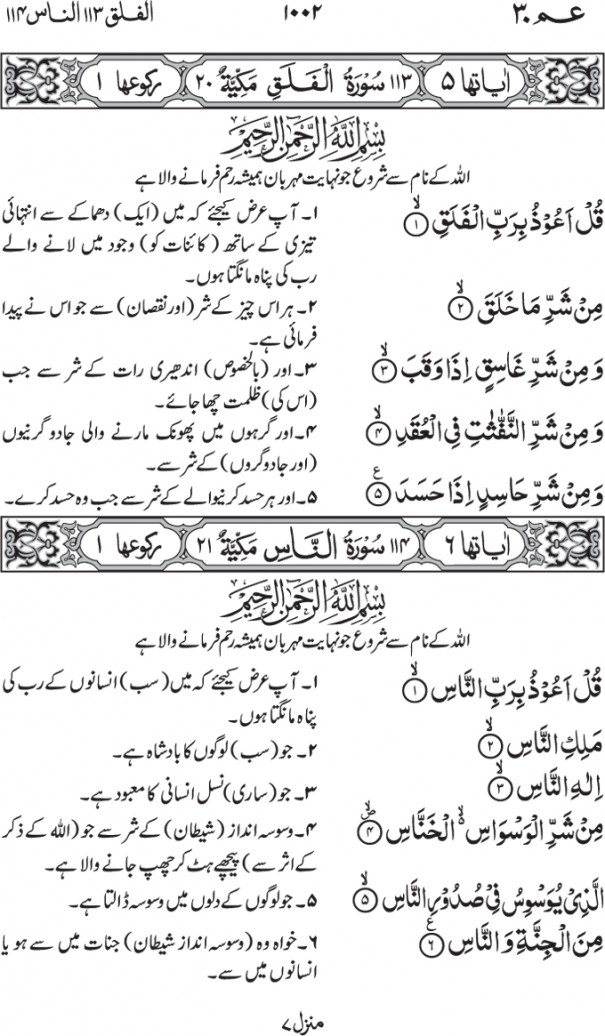 عم ۳۰ ۱۰۰۲ الفلق ۱۱۳ الناس ۱۱۴
اٰیاتھا ۵ ۱۱۳ سُوْرَةُ الْفَلَقِ مَكِّيَّةٌ ۲۰ رکوعھا ۱
بِسْمِ اللّٰهِ الرَّحْمٰنِ الرَّحِيْمِ
اللہ کے نام سے شروع جو نہایت مہربان ہمیشہ رحم فرمانے والا ہے
قُلْ اَعُوْذُ بِرَبِّ الْفَلَقِۙ ۱
۱۔ آپ عرض کیجئے کہ میں (ایک) دھماکے سے انتہائی
تیزی کے ساتھ (کائنات کو) وجود میں لانے والے
رب کی پناہ مانگتا ہوں۔
مِنْ شَرِّ مَا خَلَقَۙ ۲
۲۔ ہر اس چیز کے شر (اور نقصان) سے جو اس نے پیدا
فرمائی ہے۔
وَ مِنْ شَرِّ غَاسِقٍ اِذَا وَقَبَۙ ۳
۳۔ اور (بالخصوص) اندھیری رات کے شر سے جب
(اس کی) ظلمت چھا جائے۔
وَ مِنْ شَرِّ النَّفّٰثٰتِ فِی الْعُقَدِۙ ۴
۴۔ اور گرہوں میں پھونک مارنے والی جادوگرنیوں
(اور جادوگروں) کے شر سے۔
وَ مِنْ شَرِّ حَاسِدٍ اِذَا حَسَدَ ۵ ع
۵۔ اور ہر حسد کرنیوالے کے شر سے جب وہ حسد کرے۔
اٰیاتھا ۶ ۱۱۴ سُوْرَةُ النَّاسِ مَكِّيَّةٌ ۲۱ رکوعھا ۱
بِسْمِ اللّٰهِ الرَّحْمٰنِ الرَّحِيْمِ
اللہ کے نام سے شروع جو نہایت مہربان ہمیشہ رحم فرمانے والا ہے
قُلْ اَعُوْذُ بِرَبِّ النَّاسِۙ ۱
۱۔ آپ عرض کیجئے کہ میں (سب) انسانوں کے رب کی
پناہ مانگتا ہوں۔
مَلِكِ النَّاسِۙ ۲
۲۔ جو (سب) لوگوں کا بادشاہ ہے۔
اِلٰهِ النَّاسِۙ ۳
۳۔ جو (ساری) نسل انسانی کا معبود ہے۔
مِنْ شَرِّ الْوَسْوَاسِ ۙ۬ الْخَنَّاسِ ۪ۙ ۴
۴۔ وسوسہ انداز (شیطان) کے شر سے جو (اللہ کے ذکر
کے اثر سے) پیچھے ہٹ کر چھپ جانے والا ہے۔
الَّذِیْ یُوَسْوِسُ فِیْ صُدُوْرِ النَّاسِۙ ۵
۵۔ جو لوگوں کے دلوں میں وسوسہ ڈالتا ہے۔
مِنَ الْجِنَّةِ وَ النَّاسِ ۶ ع
۶۔ خواہ وہ (وسوسہ انداز شیطان) جنات میں سے ہو یا
انسانوں میں سے۔
منزل ۷